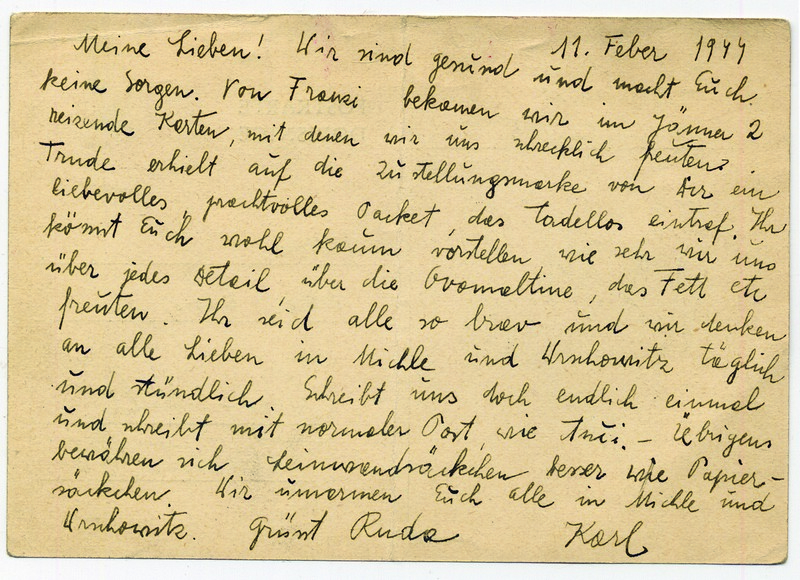 Meine Lieben! Wir sind gesund und macht Euch 11. Feber 1944
keine Sorgen. Von Franzi bekamen wir im Jänner 2
reizende Karten, mit denen wir uns schrecklich freuten.
Trude erhielt auf die Zustellungsmarke von Dir ein
liebevolles, prachtvolles Packet, das tadellos eintraf. Ihr
könnt Euch wohl kaum vorstellen wie sehr wir uns
über jedes Detail, über die Ovomaltine, das Fett etc
freuten. Ihr seid alle so brav und wir denken
an alle Lieben in Michle und Wrschowitz täglich
und stündlich. Schreibt uns doch endlich einmal
und schreibt mit normaler Post, wie – Übrigens
bewähren sich Leinwandsäckchen besser wie Papier-
säckchen. Wir umarmen Euch alle in Michle und
Wrschowitz. Grüsst Ruda Karl